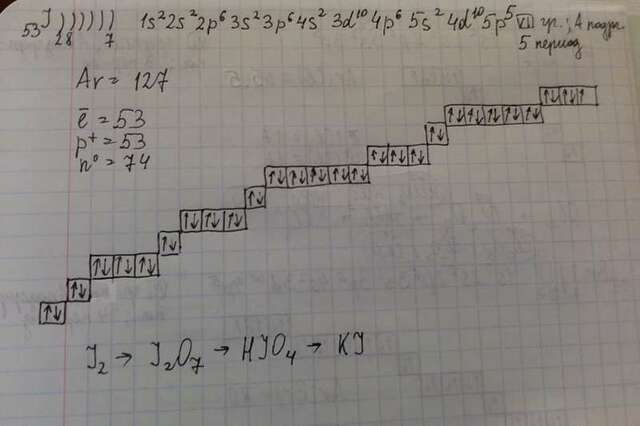 53J ))))))) 1s² 2s² 2p⁶ 3s² 3p⁶ 4s² 3d¹⁰ 4p⁶ 5s² 4d¹⁰ 5p⁵ VII гр.; А подгр.
28 7 5 период
Ar = 127
ē = 53
p⁺ = 53
n⁰ = 74
J₂ → J₂O₇ → HJO₄ → KJ